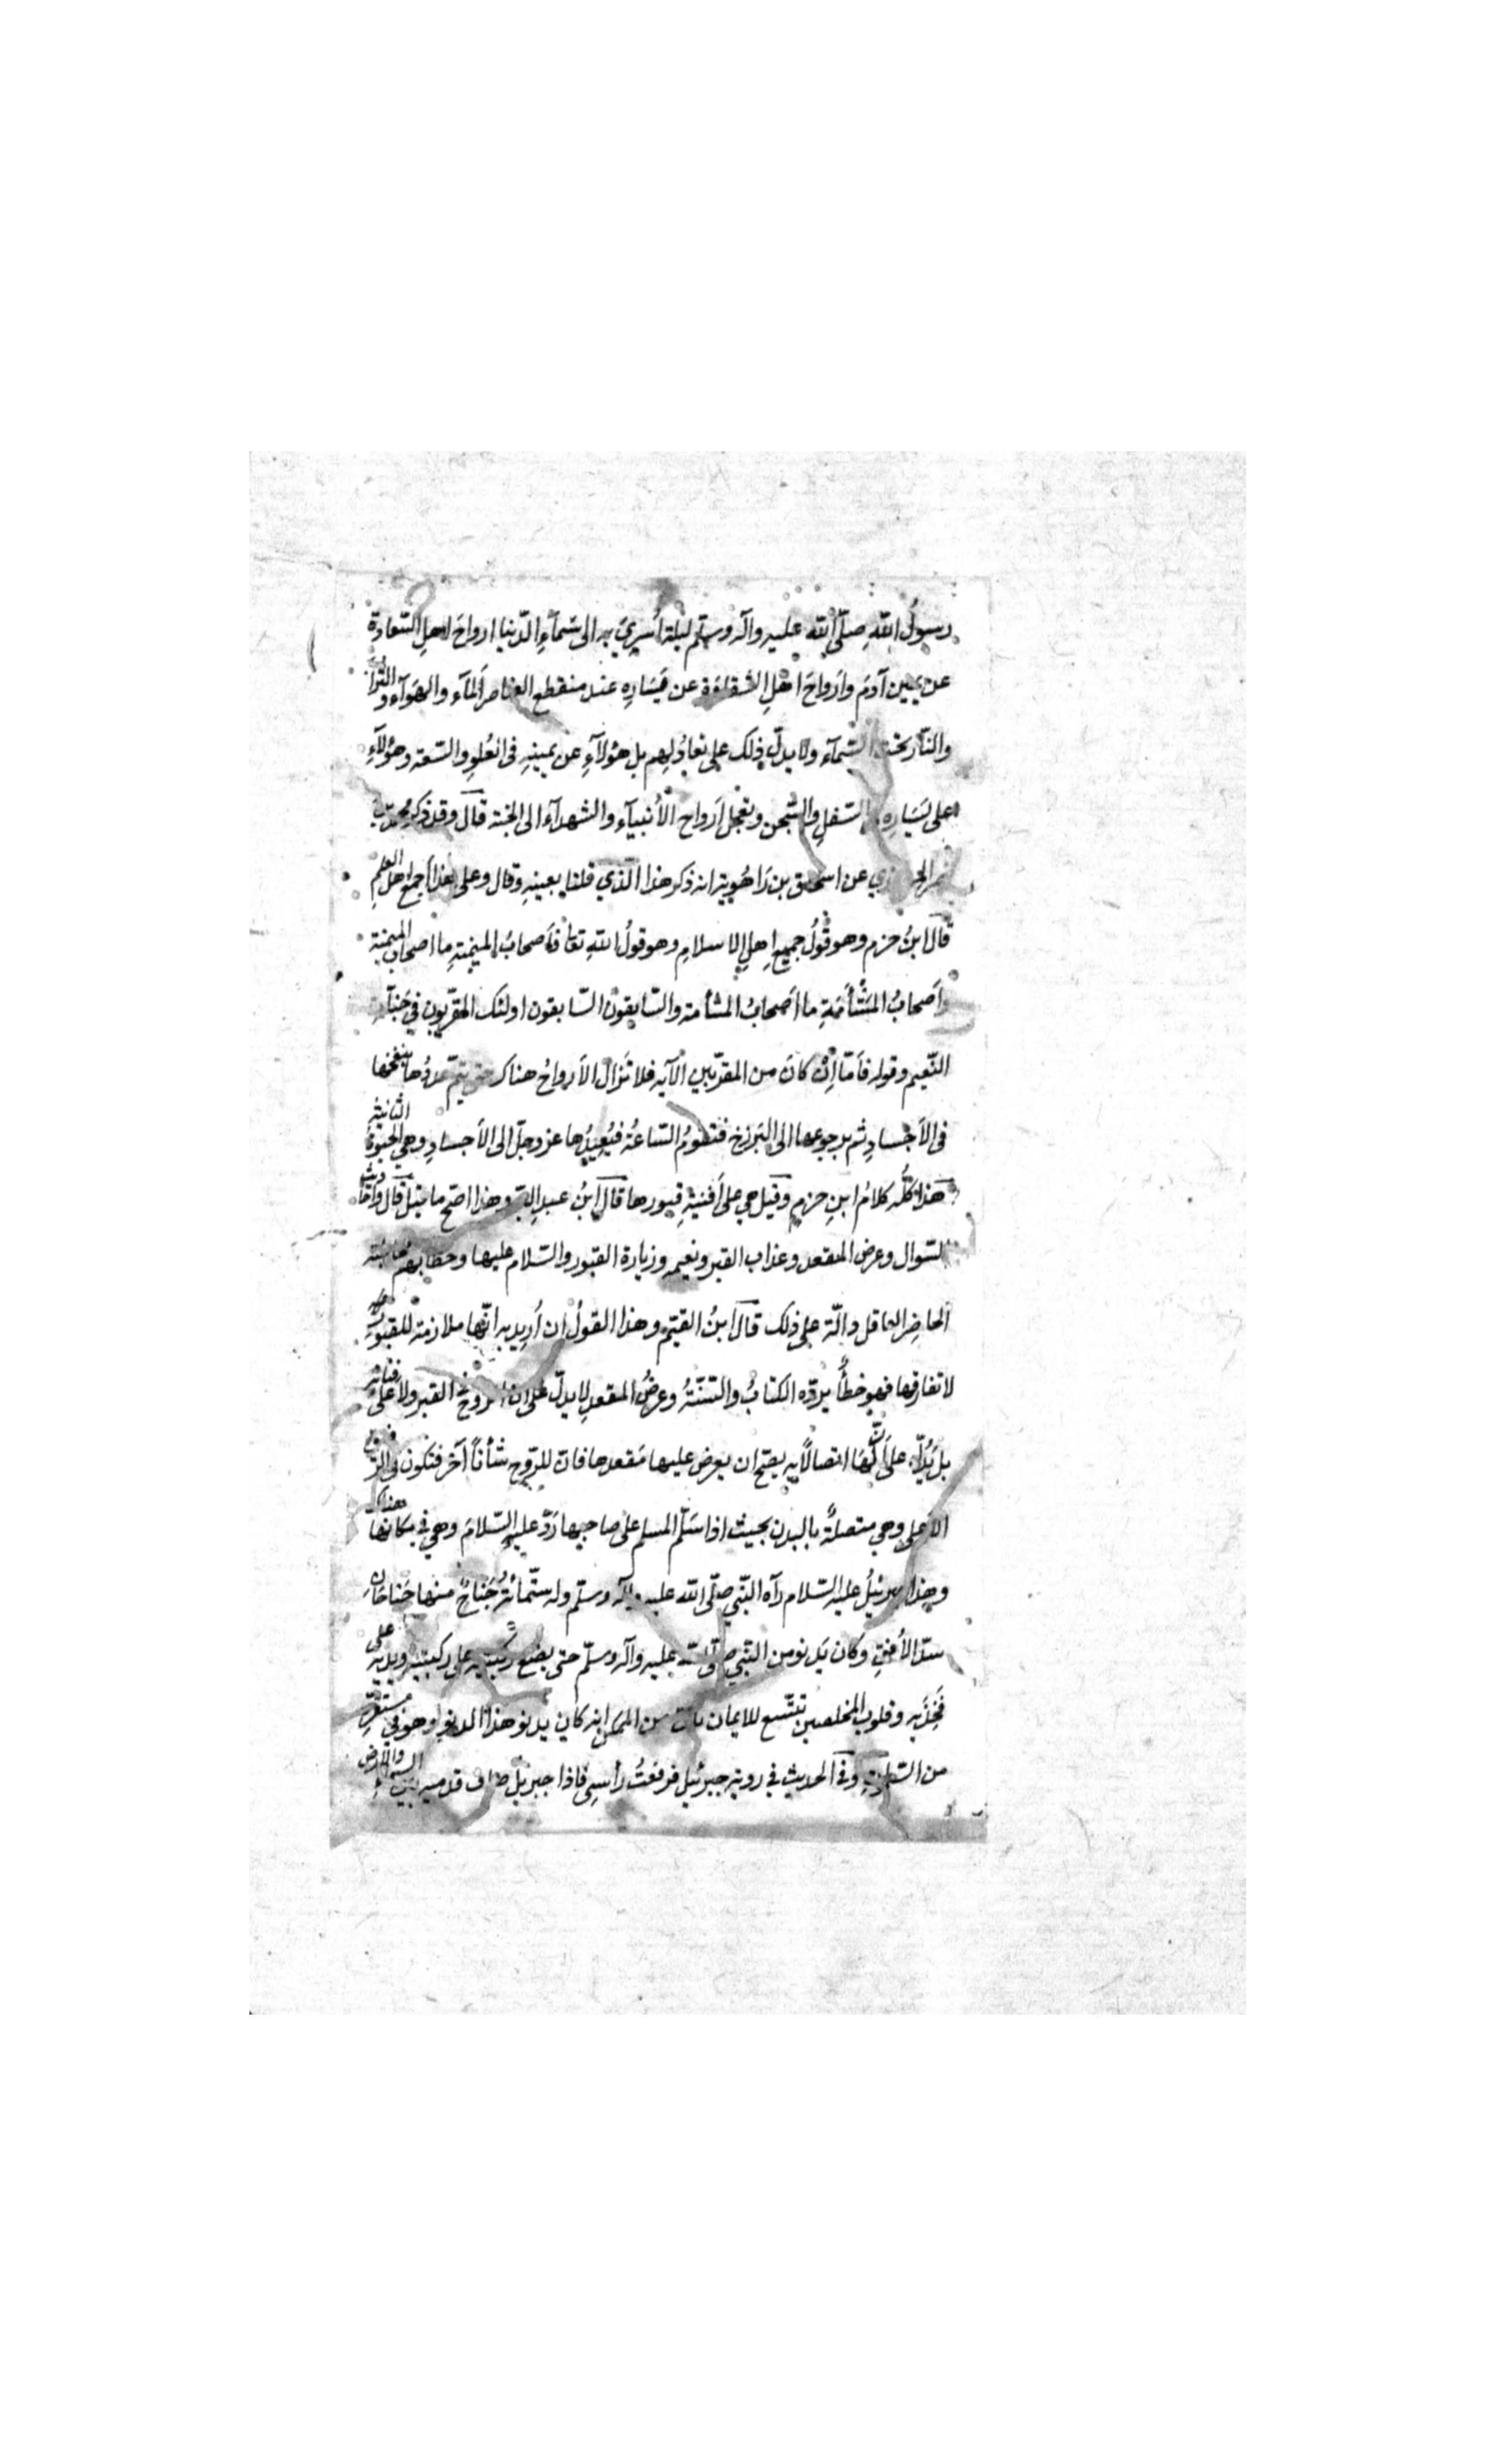 رسولُ اللّهِ صلّى اللّه عليه وآله وسلّم ليلة أُسرِيَ به الى سَمآءِ الدّنيا ارواحَ لاهلِ السّعادة
عن يمين آدَمَ وارَواحَ اهلِ الشقاوة عن يَسَارِهِ عند منقطع العناصر المآء والهَوآء والتراب
والنّار تحت السّمآء ولا يدلّ ذلك على تعادُلِهم بل هؤلاَءِ عن يمينِهِ فى العُلوِ والسّعة وهؤلاَءِ
على يَسَارِهِ السّفلِ والسّجن وتعجل اَرواح الأنبيآء والشهدآء الى الجنة قالَ وقد ذكر محمد بن
نصر المروزي عن اسحاق بن رَاهُوية انه ذكر هذا الّذي قلنا بعينِهِ وقال وعلى هذا أجمعَ اهلُ العِلمِ
قَالَ ابنُ حزم وهو قولُ جميعِ اهلِ الاسلامِ وهو قولُ اللّهِ تعا فاَصحابُ الميمنةِ ما اصحابُ الميمنة
واَصحابُ المَشْأَمَةِ ما اَصحابُ المشأمة والسّابقون السّابقون اولئك المقرّبون في جَنّآتِ
النّعيم وقوله فاَمّا اِنْ كانَ من المقرّبين الآيه فلا تَزال الأرواحُ هناك حتى يتمّ عددُها بنفخها
فى الأجسادِ ثم برجوعها الى البَرزخ فتقومُ السّاعةُ فيُعِيدُها عز وجلّ الى الأجسادِ وهي الحيوةُ الثانية
هذا كلُّه كلامُ ابنِ حزم وقيل هي على أَفنيَةِ قبورها قَالَ ابنُ عبدِ البرّ وهذا اصحّ ما قيل قال واَحاديث
السّوال وعرض المقعد وعذاب القبر ونعيمه وزيارة القبور والسّلام عليها وخطابهم مخاطبة
الحاضِرِ العاقل دالّة على ذلك قالَ ابنُ القيّم وهذا القولُ ان اُرِيد به انّها ملازمة للقبورِ
لا تفارقها فهو خطأٌ يردّه الكتابُ والسّنّةُ وعرضُ المقعدِ لا يدلّ على انّ الروحَ القبر ولا على فنائه
بل يَدُلّ على أنّ لهَا اتصالاً به يصحّ ان يعرض عليها مَقعدها فانّ للرّوحِ شأناً آخَر فتكون فى الرّفيق
الأعلى وهي متصلةٌ بالبدن بحيث اذا سَلَّم المسلم على صاحبها رَدّ عليه السّلامَ وهي في مكانها هناك
وهذا جبرئيلُ عليه السّلام رآه النّبي صلّى اللّه عليه وآله وسلّم وله ستّمائةُ جَناحٍ منها جَناحَانِ
سدّا الأُفقِ وكان يَدنو من النّبي صلّى اللّه عليه وآله وسلّم حتى يضع ركبتيه على ركبتيه ويديه على
فَخِذَيه وقلوب المخلصين تتّسع للايمان بانّ من الممكن انه كان يدنو هذا الدنو وهو في مستقرّهِ
من السّماوتِ وفى الحديث في روية جبرئيل فرفعتُ رأسِي فاذا جبرئيل صافّ قدميه بين السماء والارض